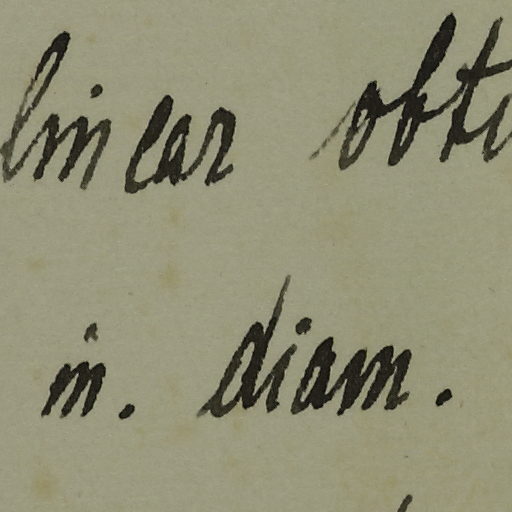 linear obtu
in. diam.